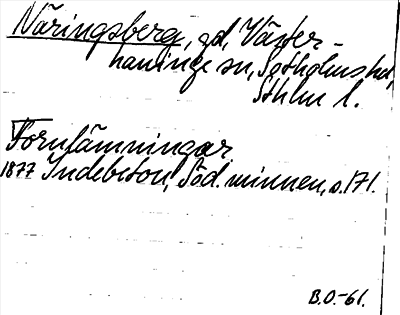 Näringsberg, gd, Väster-
haninge sn, Sotholms hd,
Sthlm l.
Fornlämningar
1877 Indebetou, Söd. minnen, s. 171.
B.O.-61.